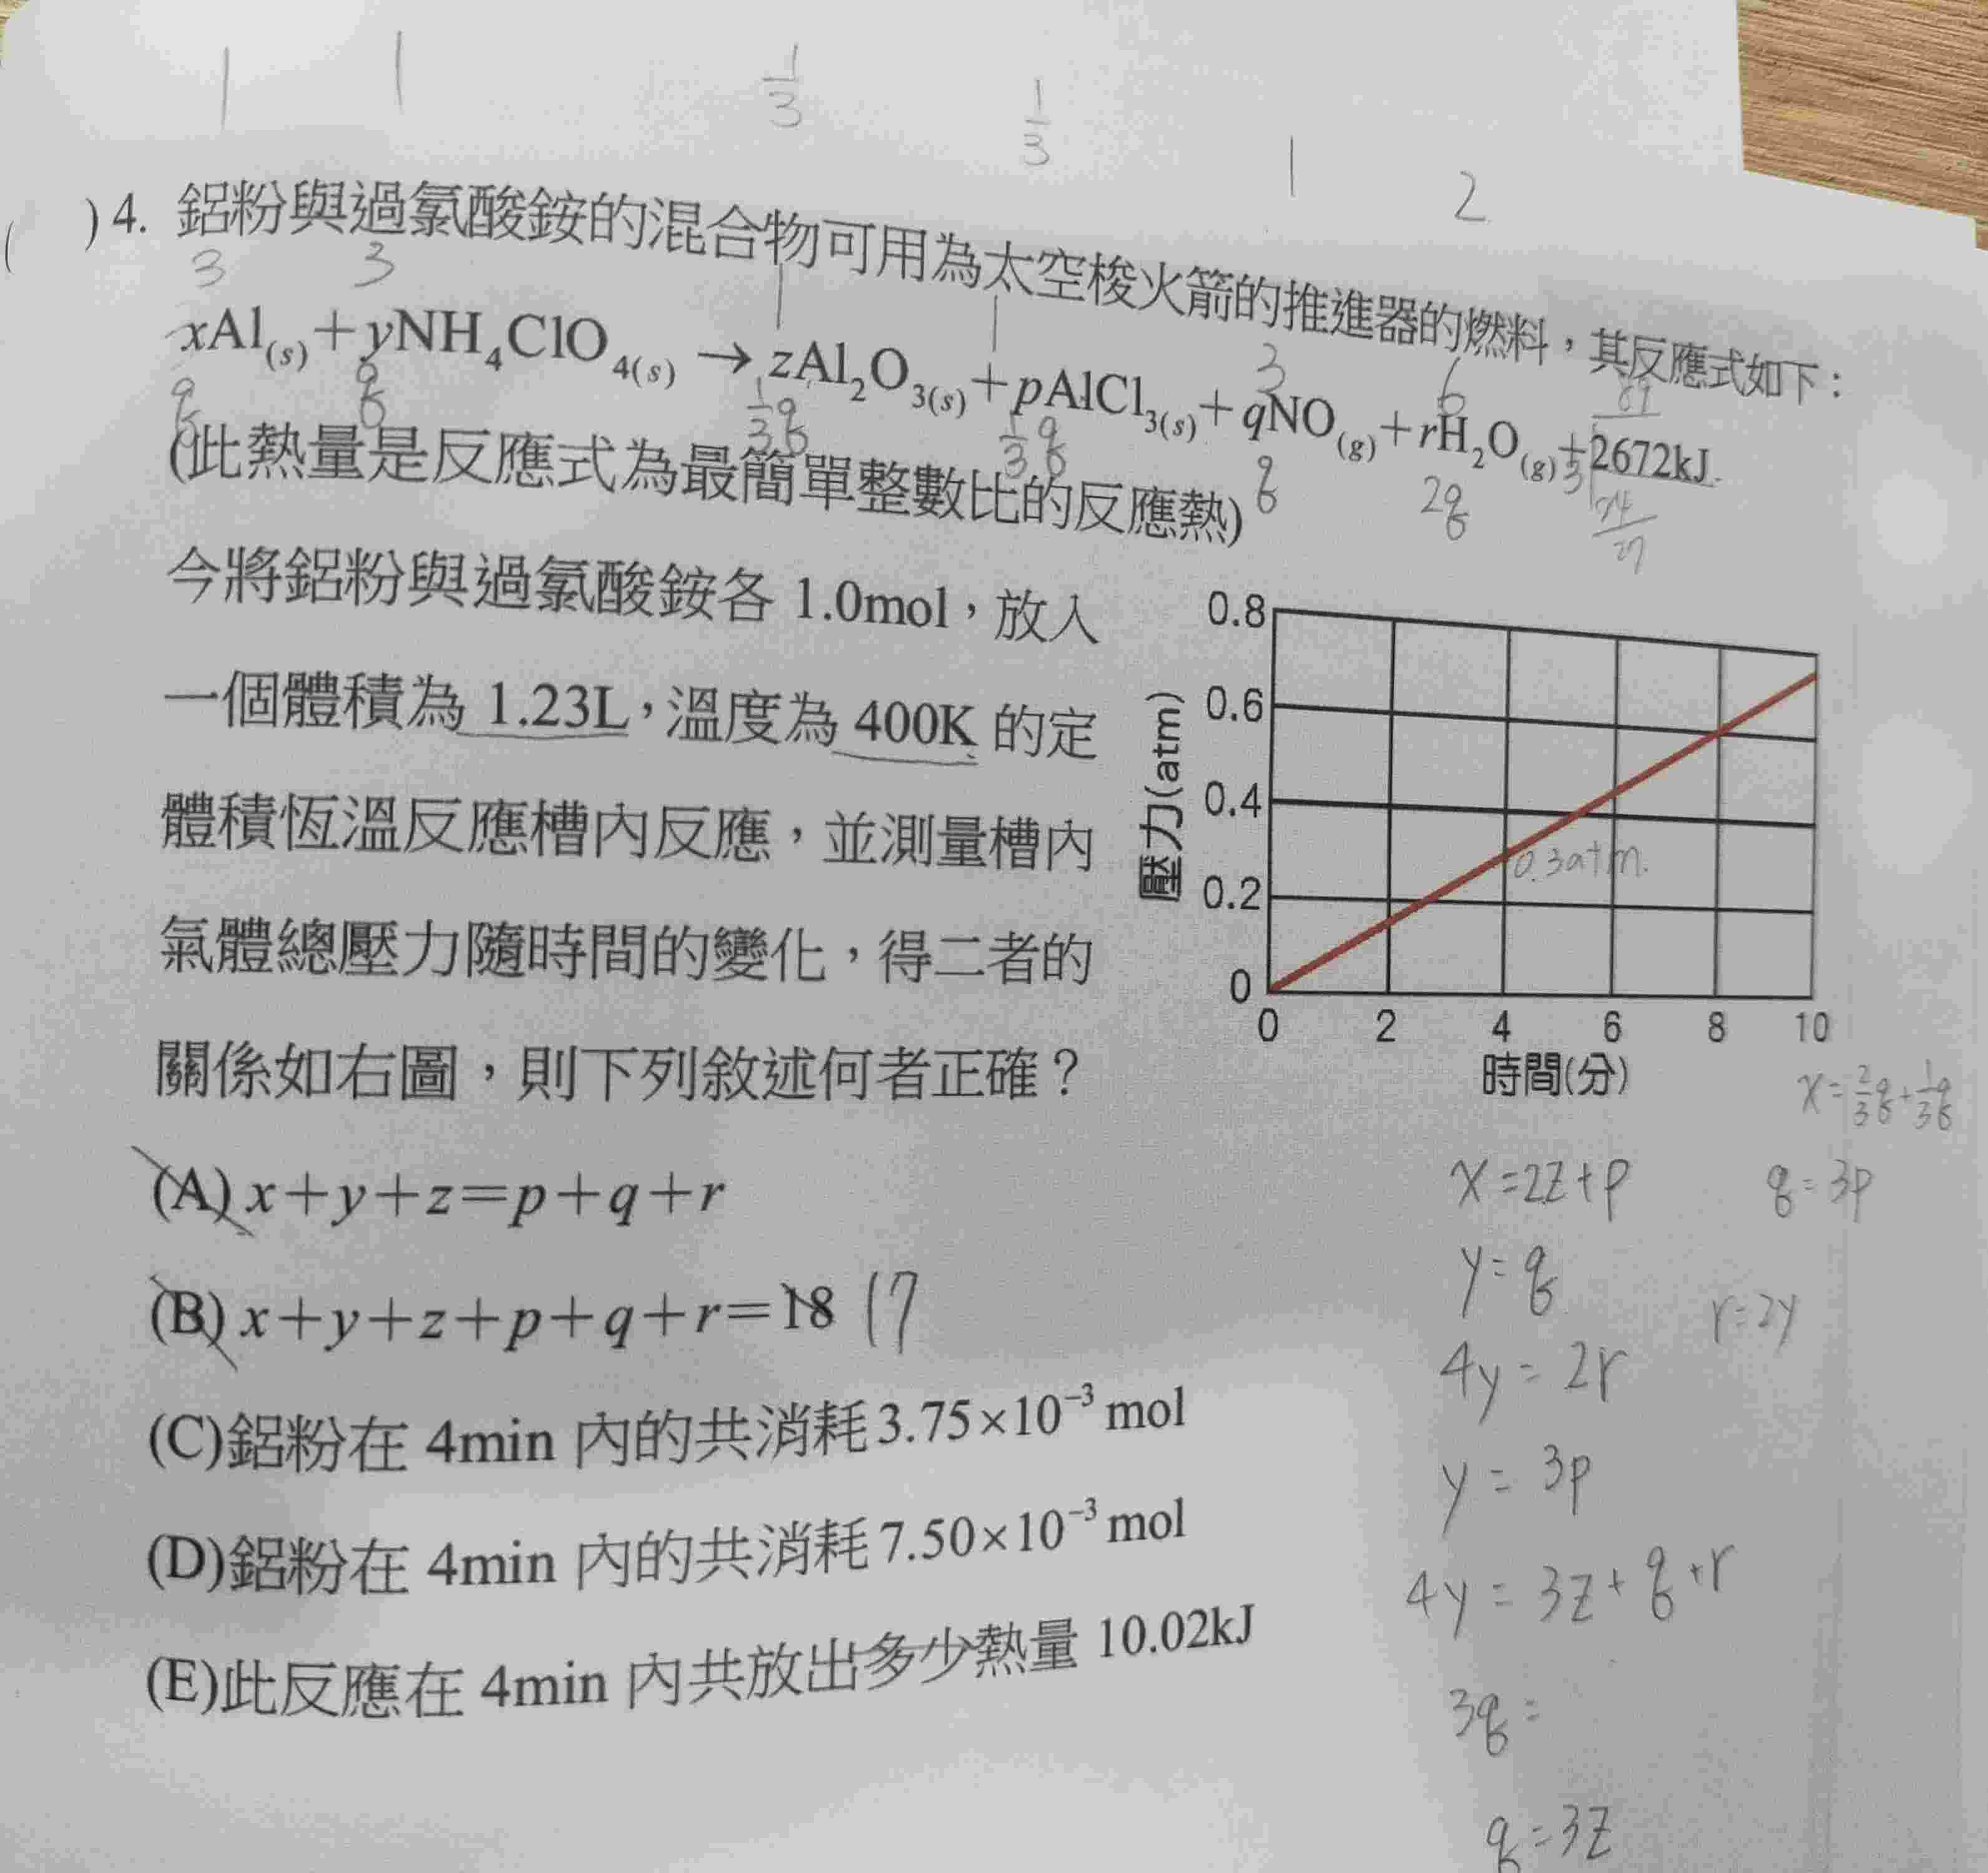 1 1 1/3 1/3 1 2
( )4. 鋁粉與過氯酸銨的混合物可用為太空梭火箭的推進器的燃料，其反應式如下：
3 3 1 1 3 6
xAl(s)+yNH4ClO4(s) → zAl2O3(s)+pAlCl3(s)+qNO(g)+rH2O(g)+2672kJ
q q 1/3q 1/3q q 2q
(此熱量是反應式為最簡單整數比的反應熱)
今將鋁粉與過氯酸銨各 1.0mol，放入
一個體積為 1.23L，溫度為 400K 的定
體積恆溫反應槽內反應，並測量槽內
氣體總壓力隨時間的變化，得二者的
關係如右圖，則下列敘述何者正確？
壓力(atm)
0.8
0.6
0.4
0.2
0
0.3atm.
0 2 4 6 8 10
時間(分)
(A) x+y+z=p+q+r
(B) x+y+z+p+q+r=18 17
(C)鋁粉在 4min 內的共消耗3.75×10⁻³ mol
(D)鋁粉在 4min 內的共消耗7.50×10⁻³ mol
(E)此反應在 4min 內共放出多少熱量 10.02kJ
x=2/3q+1/3q
x=2z+p q=3p
y=q
r=2y
4y=2r
y=3p
4y=3z+q+r
3q=
q=3z